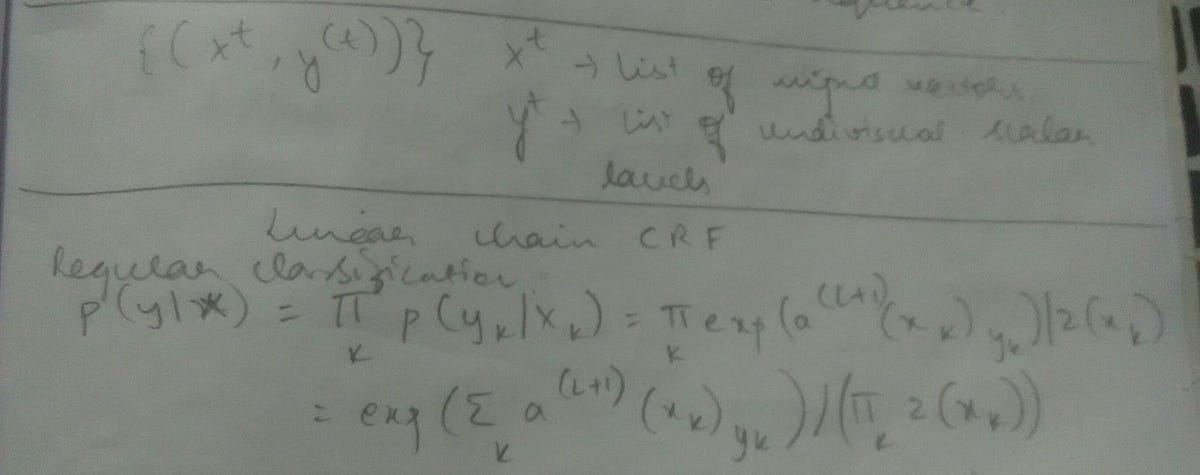 {(x^t, y^(t))} x^t → list of input vectors
y^t → list of individual scalar
labels
Linear chain CRF
Regular classification
p(y|x) = Π_k p(y_k|x_k) = Π_k exp(a^(L+1)(x_k)_y_k)/z(x_k)
= exp(Σ_k a^(L+1)(x_k)_y_k)/(Π_k z(x_k))